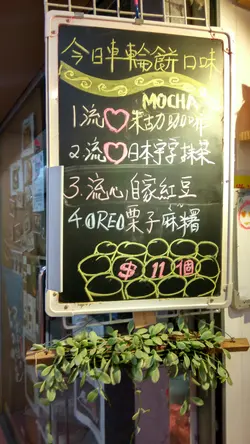 今日車輪餅口味
MOCHA
1.流♡朱古力咖啡
2.流♡日本宇字抹茶
3.流心自家紅豆
4.OREO栗子麻糬
$11個